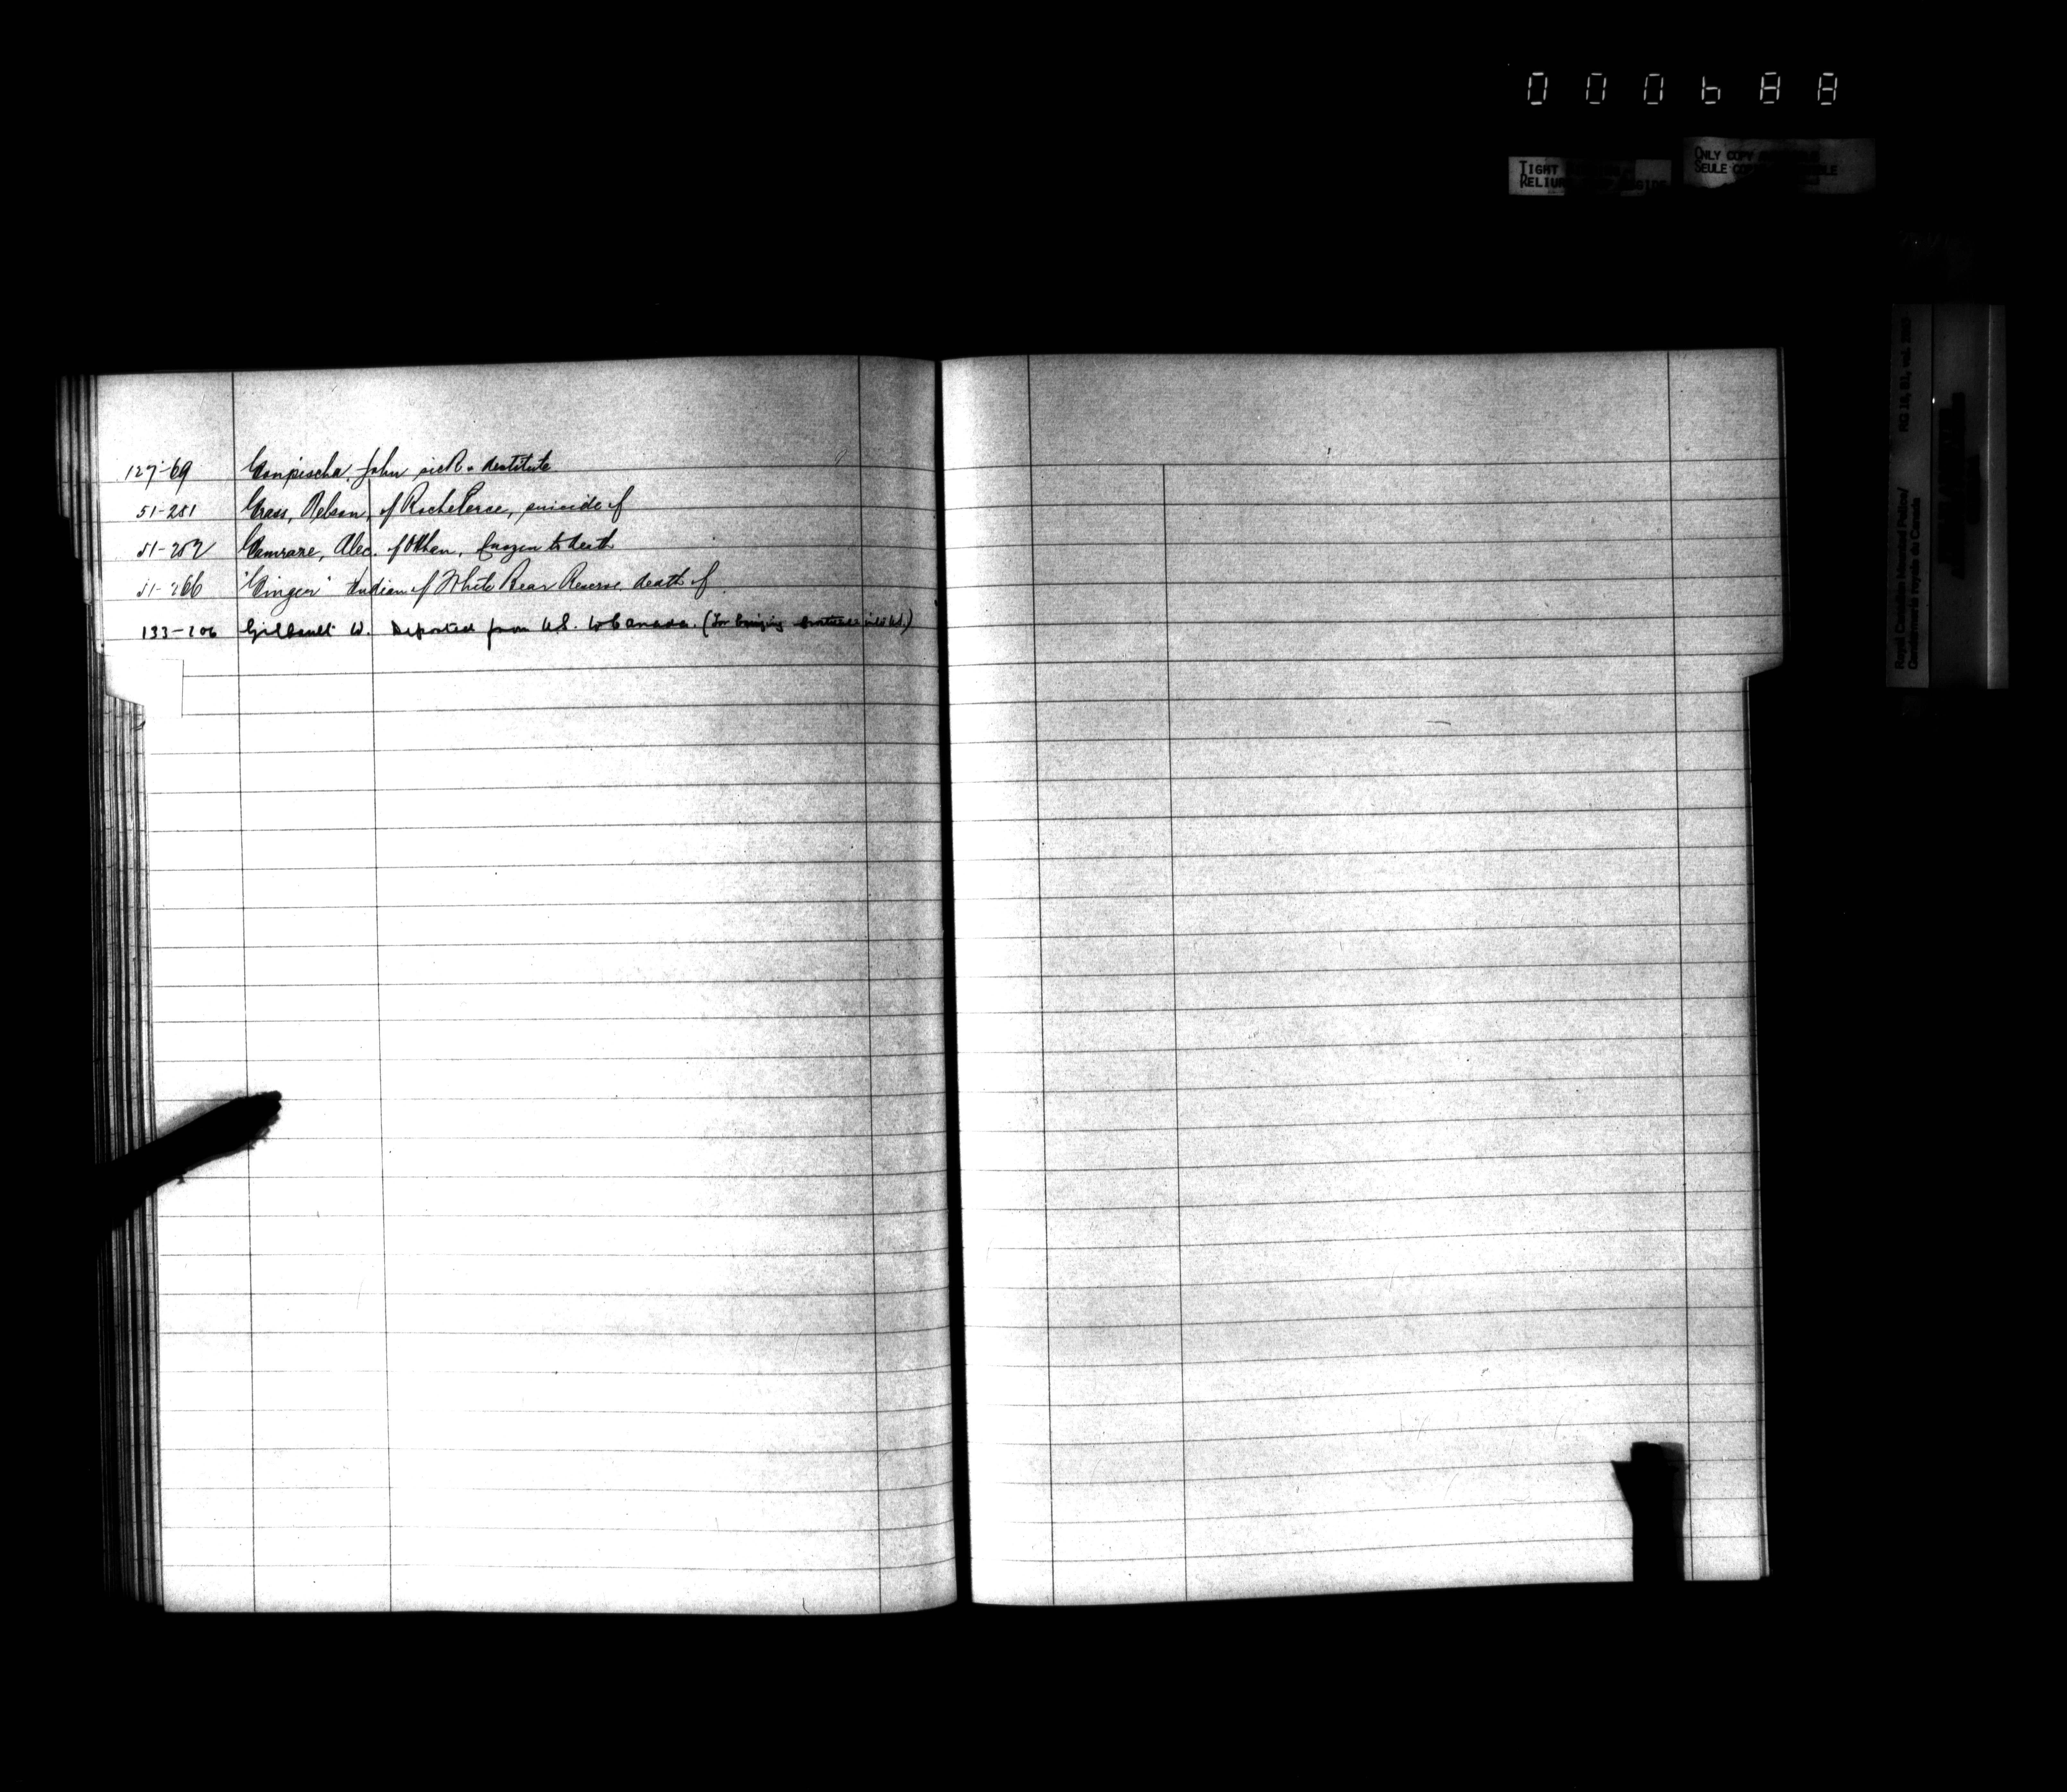 000688
TIGHT
RELIUR
ONLY COPY
SEULE COP
Royal Canadian Mounted Police/
Gendarmerie royale du Canada
RG 18, B1, vol.
127-69 Gonpischa, John sick & destitute
51-281 Grass, Nelson, of Roche Perce, suicide of
51-252 Alec. of frozen to death
51-266 "Ginger" Indian of White Bear Reserve, death of
133-206 Gilbault W. Deported from U.S. to Canada. (For bringing into U.S.)